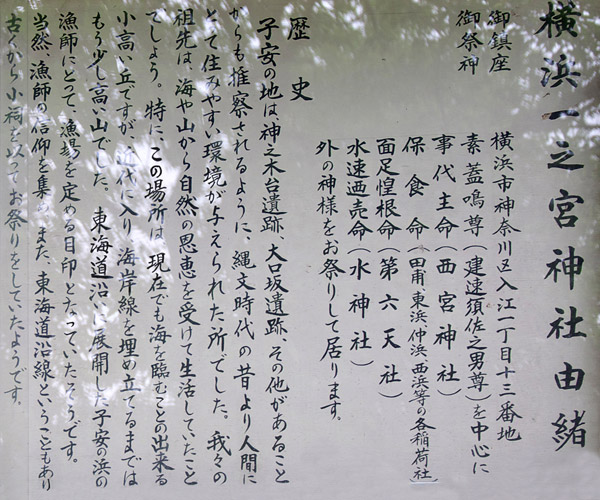 横浜一之宮神社由緒
御鎮座
横浜市神奈川区入江一丁目十三番地
御祭神
素盞嗚尊(建速須佐之男尊)を中心に
事代主命(西宮神社)
保食命(田甫、東浜仲浜西浜等の各稲荷社)
面足惶根命(第六天社)
水速迺売命(水神社)
外の神様をお祭りして居ります。
歴史
子安の地は神之木台遺跡、大口坂遺跡、その他があること
からも推察されるように、縄文時代の昔より人間に
とて住みやすい環境が与えられた所でした。我々の
祖先は、海や山から自然の恩恵を受けて生活していたこと
でしょう。特に、この場所は、現在でも海を臨むことの出来る
小高い丘ですが、近代に入り、海岸線を埋め立てるまでは
もう少し高い山でした。東海道沿いに展開した子安の浜の
漁師にとって、漁場を定める目印となっていたそうです。
当然、漁師の信仰を集め、また、東海道沿線ということもあり
古くから小祠を以てお祭りをしていたようです。